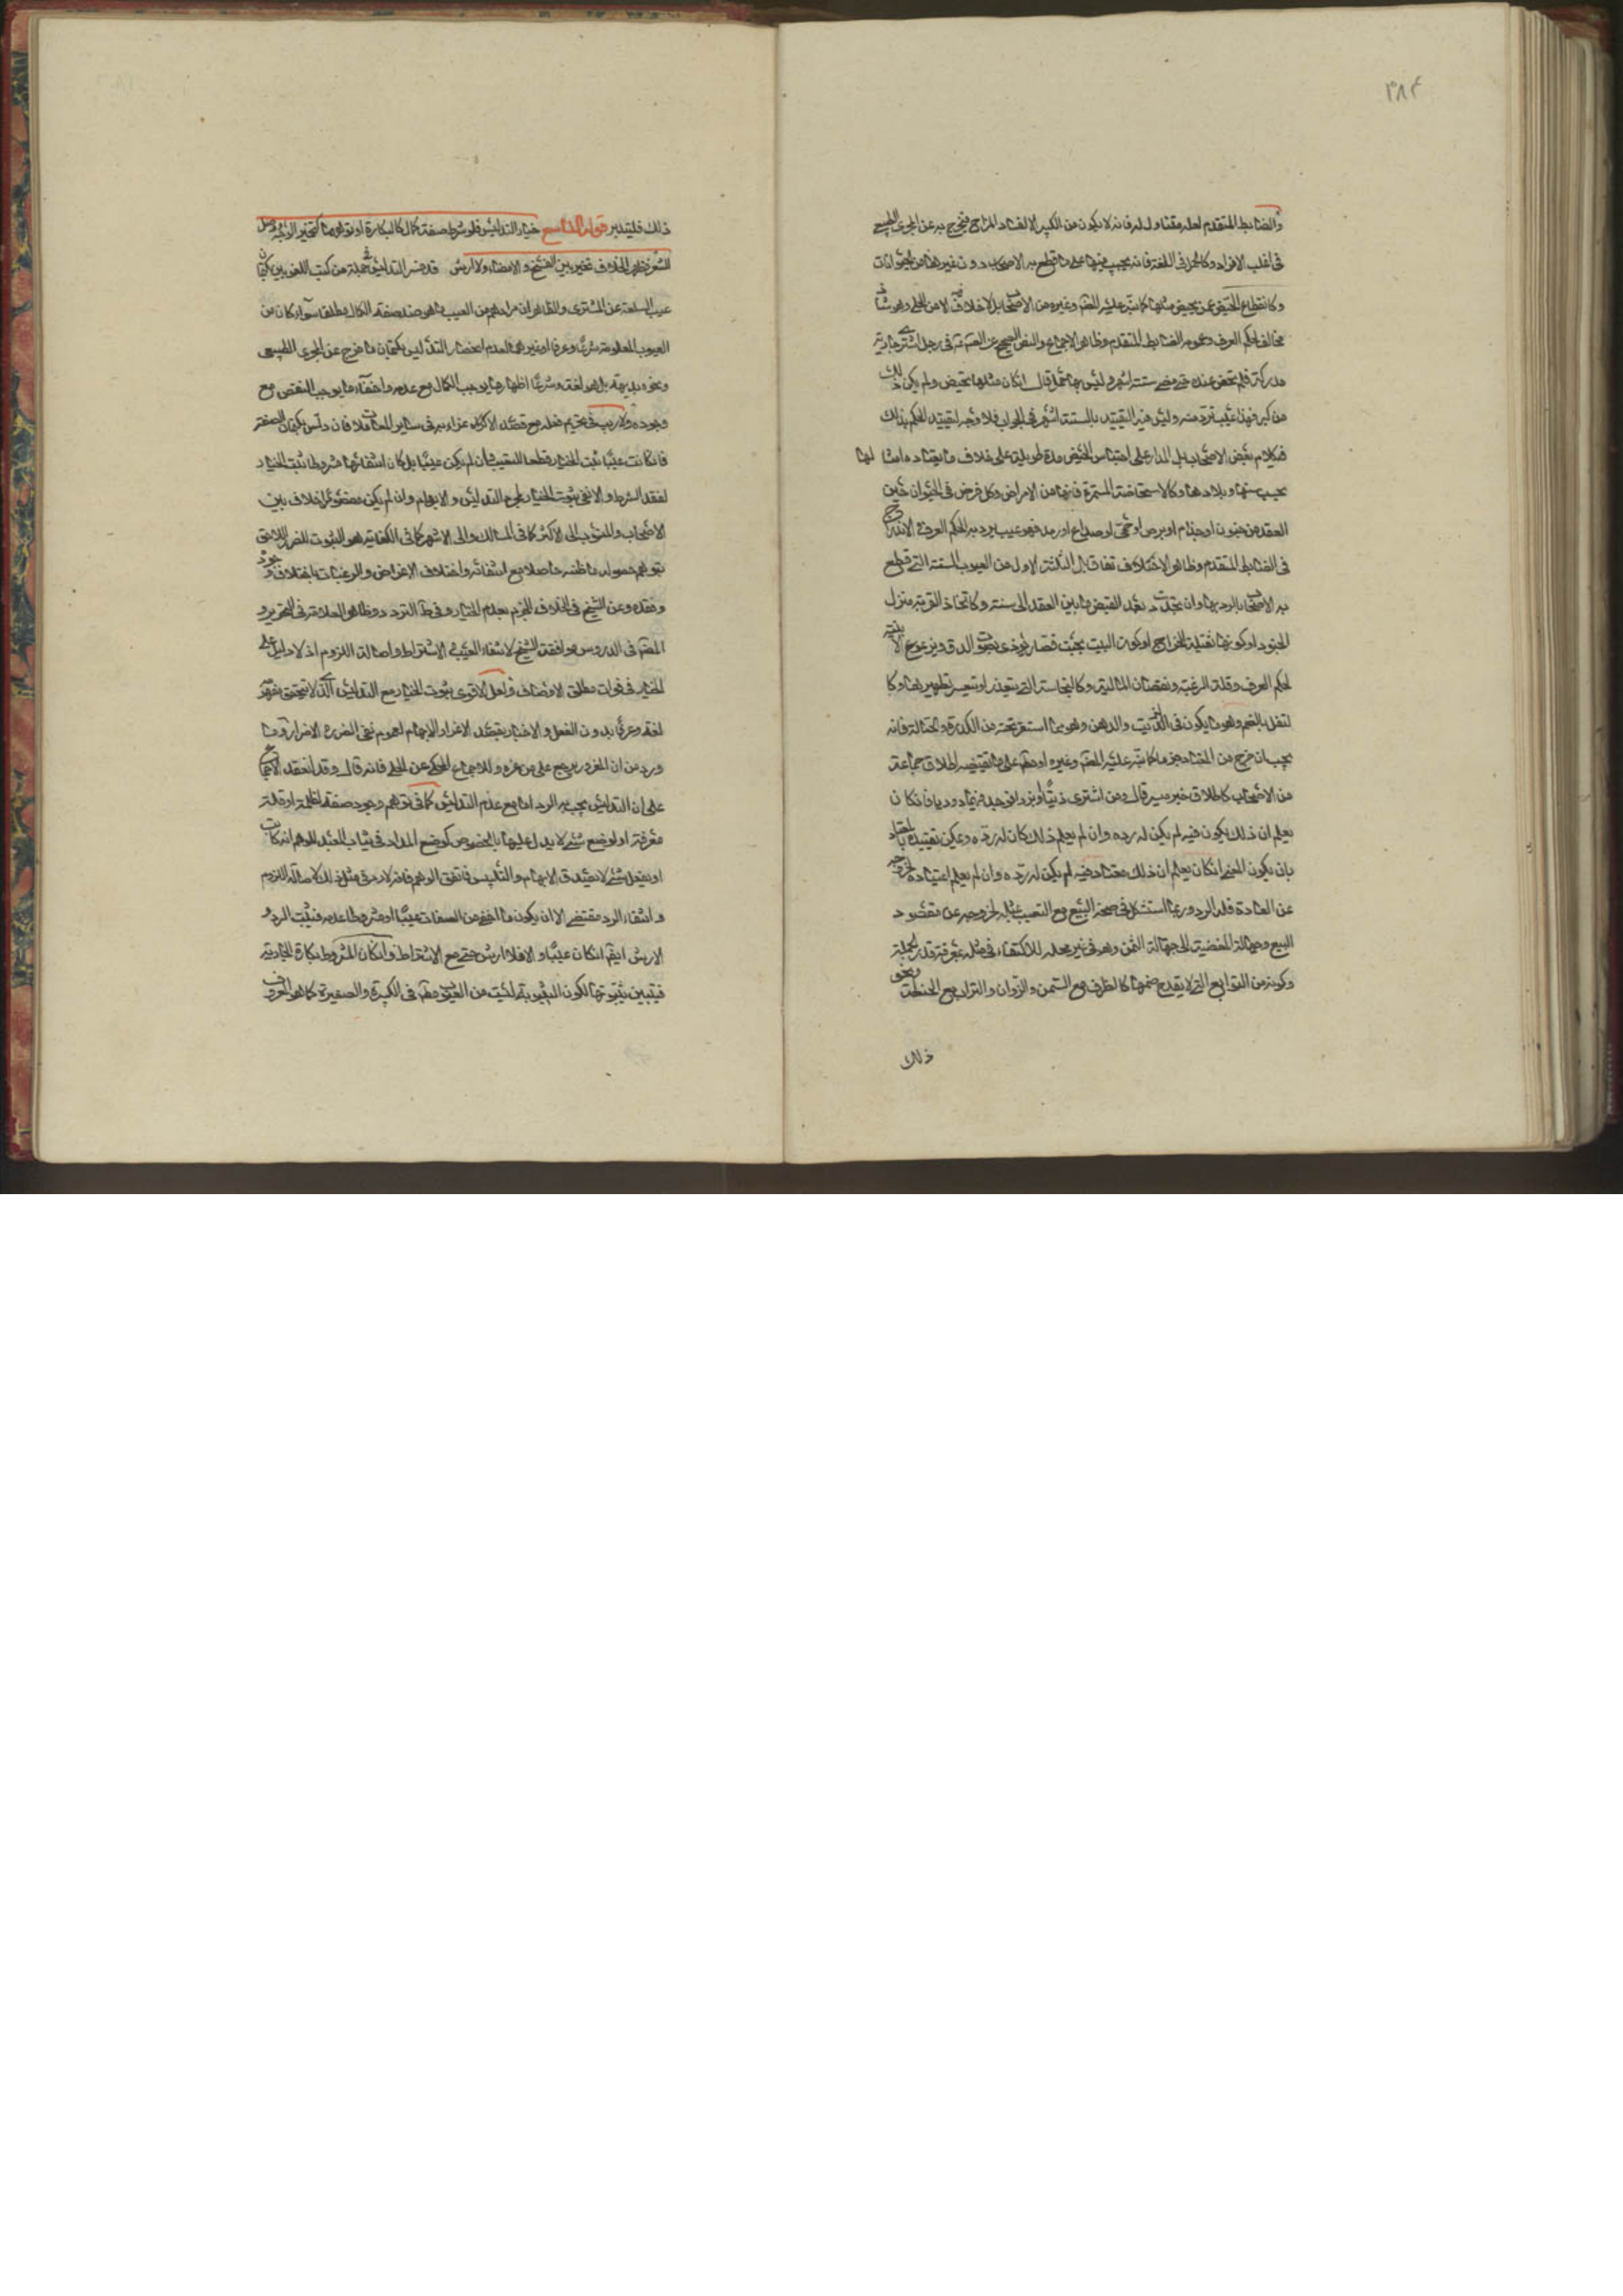 ٣٨٤
والضابط المتقدم لعله متناول له فانه لا يكون من الكبر الا لفساد المزاج فيخرج به عن المجرى الطبيعي
في اغلب الافراد وكالحمل في اللغة فانه يجب فيها على ما قطع به الاصحاب دون غيرها من الحيوانات
وكانقطاع الحيض عمن تحيض مثلها كما نبه عليه المصنف وغيره من الاصحاب بلا خلاف فيه الا من الحلي وهو شاذ
مخالف لحكم العرف وعموم الضابط المتقدم وظاهر الاجماع والنص الصحيح عن الصادق في رجل اشترى جارية
مدركة فلم تحض عنده حتى مضى ستة اشهر وليس بها حمل قال ان كان مثلها تحيض ولم يكن ذلك
من كبر فهذا عيب ترد منه وليس فيه التقييد بالستة اشهر في الجواب فلا وجه لتقييد الحكم بذلك
في كلام بعض الاصحاب بل المدار على احتباس الحيض مدة طويلة على خلاف ما يعتاده امثالها
بحسب سنها وبلادها وكالاستحاضة المستمرة فانها من الامراض وكل مرض في الحيوان حين
العقد من جنون او جذام او برص او حمى او صداع او رمد فهو عيب يرد به لحكم العرف والاندراج
في الضابط المتقدم وظاهر الاختلاف نعم قابل الثلثة الاول من العيوب الستة التي قطع
به الاصحاب بالرد بها وان تجددت بعد القبض ما بين العقد الى سنة وكاتخاذ القرية منزل
الجنود او كونها ثقيلة الخراج او كون البيت بجنب قصار يؤذي بصوت الدق ويزعزع الابنية
لحكم العرف وقلة الرغبة ونقصان المالية وكالنجاسة التي يتعذر او يتعسر تطهيرها وكا
لثفل بالضم وهو ما يكون في الزيت والدهن وهو ما استقر تحته من الكدرة والحثالة فانه
يجب ان خرج من المعتاد جزما كما نبه عليه المصنف وغيره او مطلقا على ما يقتضيه اطلاق جماعة
من الاصحاب كاطلاق خبر ميسر قال ومن اشترى زيتا او بزرا فوجد فيهما دوديا فان كان
يعلم ان ذلك يكون فيه لم يكن له رده وان لم يعلم ذلك كان له رده ويمكن تقييده بالمعتاد
بان يكون المعنى ان كان يعلم ان ذلك معتاد فيه لم يكن له رده وان لم يعلم اعتياده لخروجه
عن العادة فله الرد وربما استشكل في صحة البيع مع التعيب بمثله لخروجه عن مقصود
البيع وجهالة المفضية الى جهالة الثمن وهو في غير محله للاكتفاء في مثله بمعرفة قدر الجملة
وكونه من التوابع التي لا يقدح ضمها كالظرف مع السمن والزوان والتراب مع الحنطة ونحو
ذلك
ذلك فليتدبر قوله التاسع خيار التدليس فلو شرط صفة كمال كالبكارة او توهمها كتحمير الوجه ووصل
الشعر فظهر الخلاف تخير بين الفسخ والامضاء ولا ارش قد فسر التدليس في جملة من كتب اللغويين بكتمان
عيب السلعة عن المشتري والظاهر ان مرادهم من العيب ما هو ضد صفة الكمال مطلقا سواء كان من
العيوب المعلومة شرعا وعرفا او غيرها لعدم انحصار التدليس بكتمان ما خرج عن المجرى الطبيعي
ونحوه بديهة بل هو لغة وشرعا اظهار ما يوجب الكمال مع عدمه واخفاء ما يوجب النقص مع
وجوده ولا ريب في تحريم فعله مع قصد الاكراه عزاء به في سائر المعاملات فان دلس بكتمان الصفة
فان كانت عيبا ثبت الخيار قطعا للتعيب وان لم يكن عيبا بل كان انتفائها مشروطا ثبت الخيار
لفقد الشرط والا نفى ثبوت الخيار لمجرد التدليس والايهام وان لم يكن مقصودا خلاف بين
الاصحاب والمنسوب الى الاكثر كما في المسالك والى الاشهر كما في الكفاية هو الثبوت للضرر اللاحق
بتوهم حصول ما ظنه حاصلا مع انتفائه واختلاف الاغراض والرغبات باختلاف وجود
وفقده وعن الشيخ في الخلاف الجزم بعدم الخيار وفي ط التردد وظاهر العلامة في التحرير و
المصنف في الدروس موافقة الشيخ لانتفاء العيب والاشتراط واصالة اللزوم اذ لا دليل على
الخيار في فوات مطلق الاوصاف ولعل الاقوى ثبوت الخيار مع التدليس الذي لا يتحقق مفهومه
لغة وعرفا بدون الفعل والاخبار بقصد الاغراء والايهام لعموم نفي الضرر والاضرار وما
ورد من ان المغرور يرجع على من غره وللاجماع المحكي عن الحلي فانه قال وقد انعقد الاجماع
على ان التدليس يجب به الرد اما مع عدم التدليس كما في توهم وجود صفة لغلبة او قلة
معرفة او لوضع شيء لا يدل عليها بالخصوص كوضع المداد في ثياب العبد الموهم انه كاتب
او بفعل شيء لا بقصد الايهام والتلبيس فاتفق الوهم فانه لا رد في مثل ذلك لاصالة اللزوم
وانتفاء الرد مقتضى الا ان يكون ما اخفي من الصفات عيبا او مشروطا عدمه فيثبت الرد و
الارش ايضا ان كان عيبا والا فلا ارش حتى مع الاشتراط وان كان المشروط بكارة الجارية
فيتبين ثيبوبتها لكون الثيبوبة ليست من العيوب مطلقا في الكبيرة والصغيرة كما هو المعروف